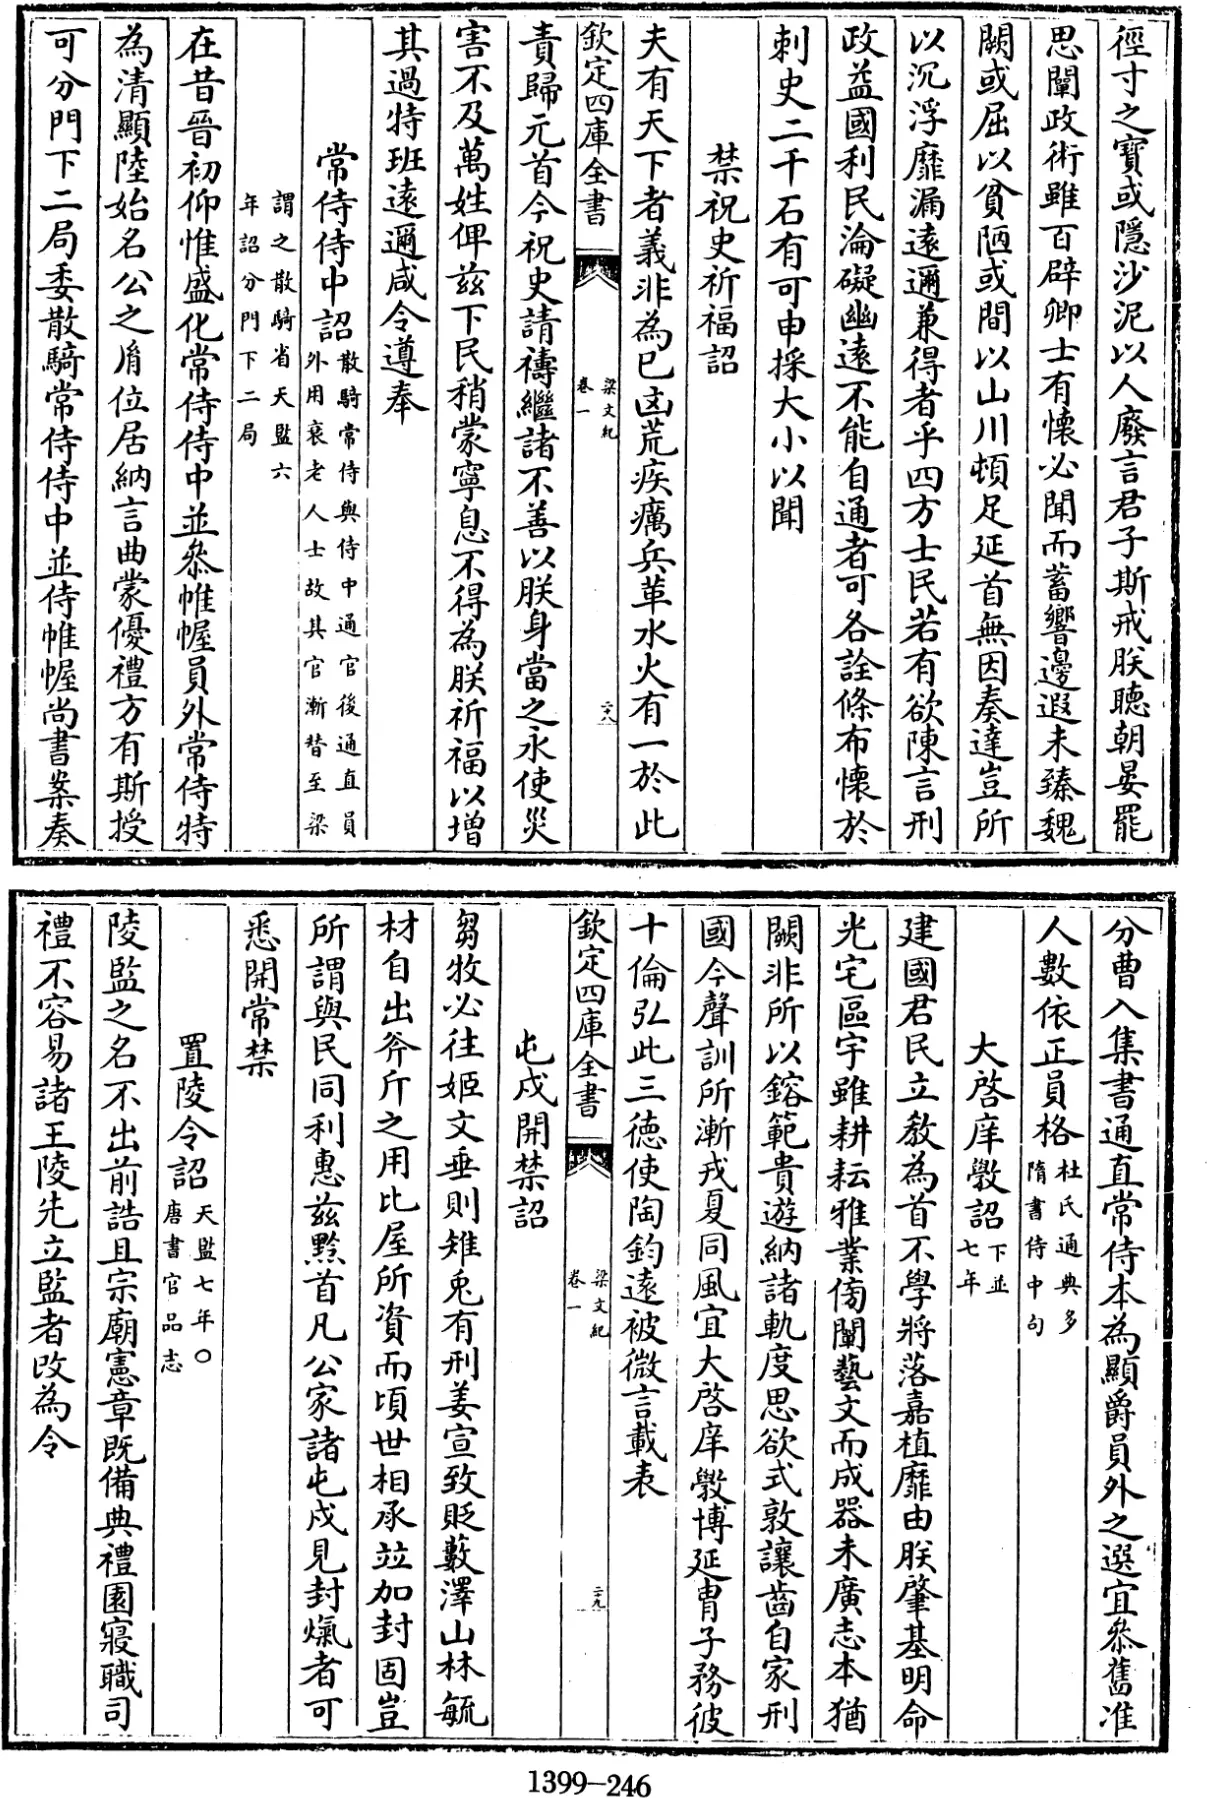 徑寸之寳或隱沙泥以人廢言君子斯戒朕聴朝晏罷
思闡政術雖百辟卿士有懐必聞而蓄響邊遐未臻魏
闕或屈以貧陋或間以山川頓足延首無因奏達豈所
以沉浮靡漏逺邇兼得者乎四方士民若有欲陳言刑
政益國利民淪礙幽逺不能自通者可各詮條布懐於
刺史二千石有可申採大小以聞
禁祝史祈福詔
夫有天下者義非為已凶荒疾癘兵革水火有一於此
欽定四庫全書
梁文紀
卷一
二十八
責歸元首今祝史請禱繼諸不善以朕身當之永使災
害不及萬姓俾兹下民稍蒙寧息不得為朕祈福以增
其過特班逺邇咸令遵奉
常侍侍中詔
散騎常侍與侍中通官後通直員
外用衰老人士故其官漸替至梁
謂之散騎省天監六
年詔分門下二局
在昔晉初仰惟盛化常侍侍中並叅帷幄員外常侍特
為清顯陸始名公之𦙍位居納言曲蒙優禮方有斯授
可分門下二局委散騎常侍侍中並侍帷幄尚書案奏
分曹入集書通直常侍本為顯爵員外之選宜叅舊准
人數依正員格
杜氏通典多
隋書侍中句
大啓庠斆詔
下並
七年
建國君民立教為首不學將落嘉植靡由朕肇基明命
光宅區宇雖耕耘雅業傍闡藝文而成器未廣志本猶
闕非所以鎔範貴遊納諸軌度思欲式敦讓齒自家刑
國今聲訓所漸戎夏同風宜大啓庠斆博延胄子務彼
十倫弘此三徳使陶鈞逺被微言載表
欽定四庫全書
梁文紀
卷一
二十九
屯戍開禁詔
芻牧必往姬文垂則雉兎有刑姜宣致貶藪澤山林毓
材自出斧斤之用比屋所資而頃世相承竝加封固豈
所謂與民同利惠兹黔首凡公家諸屯戍見封爈者可
悉開常禁
置陵令詔
天監七年○
唐書官品志
陵監之名不出前誥且宗廟憲章既備典禮園寢職司
禮不容易諸王陵先立監者改為令
1399-246